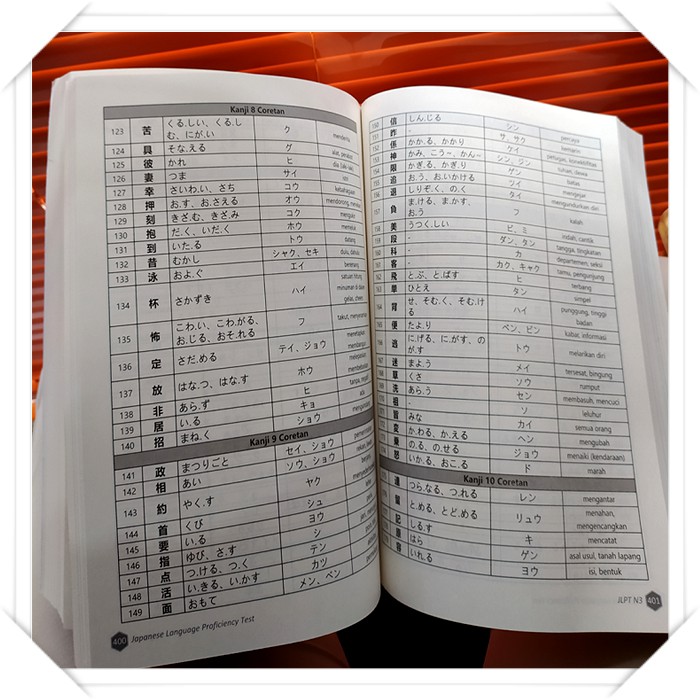 Kanji 8 Coretan
123 苦 くる.しい、くる.し
む、にが.い ク
124 具 そな.える グ
125 彼 かれ ヒ
126 妻 つま サイ
127 幸 さいわ.い、さち コウ
128 押 お.す、お.さえる オウ
129 刻 きざ.む、きざ.み コク
130 抱 だ.く、いだ.く ホウ
131 到 いた.る トウ datang
132 昔 むかし シャク、セキ dulu, dahulu
133 泳 およ.ぐ エイ berenang
134 杯 さかずき ハイ satuan hitung
135 怖 こわ.い、こわ.がる、
お.じる、おそ.れる フ
136 定 さだ.める テイ、ジョウ
137 放 はな.つ、はな.す ホウ
138 非 あら.ず ヒ
139 居 い.る キョ
140 招 まね.く ショウ
Kanji 9 Coretan
141 政 まつりごと セイ、ショウ
142 相 あい ソウ、ショウ
143 約 やく.す ヤク
144 首 くび シュ
145 要 い.る ヨウ
146 指 ゆび、さ.す シ
147 点 つ.ける、つ.く テン
148 活 い.きる、い.かす カツ
149 面 おもて メン、ベン
400 Japanese Language Proficiency Test
150 信 しん.じる シン percaya
151 昨 - サ、サク kemarin
152 係 かか.る、かかり ケイ
153 神 かみ、こう-、かん- シン、ジン tuhan, dewa
154 限 かぎ.る、かぎ.り ゲン batas
155 追 お.う、お.いかける ツイ mengejar
156 退 しりぞ.く、の.く タイ mengundurkan diri
157 負 ま.ける、ま.かす、
お.う フ kalah
158 美 うつく.しい ビ、ミ indah, cantik
段 - ダン、タン tangga, tingkatan
科 - カ departemen, seksi
客 - カク、キャク tamu, pengunjung
飛 と.ぶ、と.ばす ヒ terbang
単 ひとえ タン simpel
背 せ、そむ.く、そむ.け
る ハイ punggung, tinggi
badan
便 たよ.り ベン、ビン kabar, informasi
逃 に.げる、に.がす、の
が.す トウ melarikan diri
迷 まよ.う メイ tersesat, bingung
草 くさ ソウ rumput
洗 あら.う セン membasuh, mencuci
祖 ソ leluhur
皆 みな カイ semua orang
変 か.わる、か.える ヘン mengubah
乗 の.る、の.せる ジョウ menaki (kendaraan)
怒 いか.る、おこ.る ド marah
Kanji 10 Coretan
連 つら.なる、つ.れる レン mengantar
留 と.める、とど.める リュウ menahan,
mengencangkan
記 しる.す キ mencatat
原 はら ゲン asal usul, tanah lapang
容 い.れる ヨウ isi, bentuk
JLPT N3 401